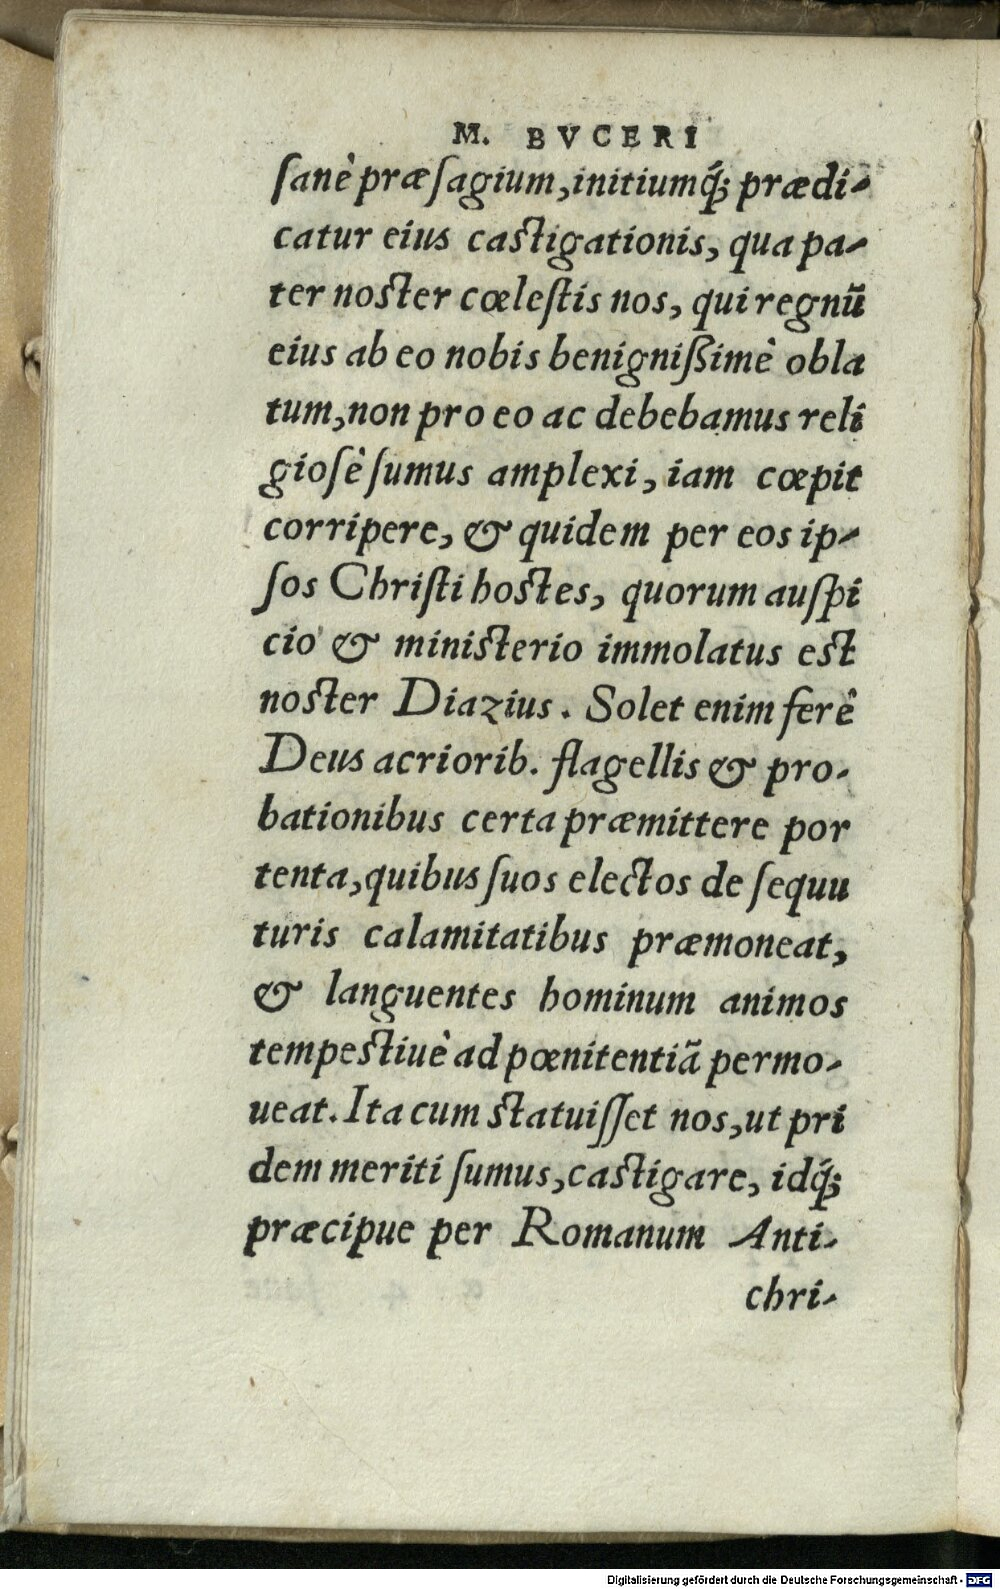 M. BVCERI
ſanè præſagium, initiumq́; prædi-
catur eius caſtigationis, qua pa-
ter noſter cœleſtis nos, qui regnū
eius ab eo nobis benignißimè obla
tum, non pro eo ac debebamus reli
gioſè ſumus amplexi, iam cœpit
corripere, & quidem per eos ip-
ſos Chriſti hoſtes, quorum auſpi
cio & miniſterio immolatus eſt
noſter Diazius. Solet enim ferè
Deus acriorib. flagellis & pro-
bationibus certa præmittere por
tenta, quibus ſuos electos de ſequu
turis calamitatibus præmoneat,
& languentes hominum animos
tempeſtiuè ad pœnitentiā permo-
ueat. Ita cum ſtatuiſſet nos, ut pri
dem meriti ſumus, caſtigare, idq́;
præcipue per Romanum Anti-
chri-
Digitalisierung gefördert durch die Deutsche Forschungsgemeinschaft - DFG